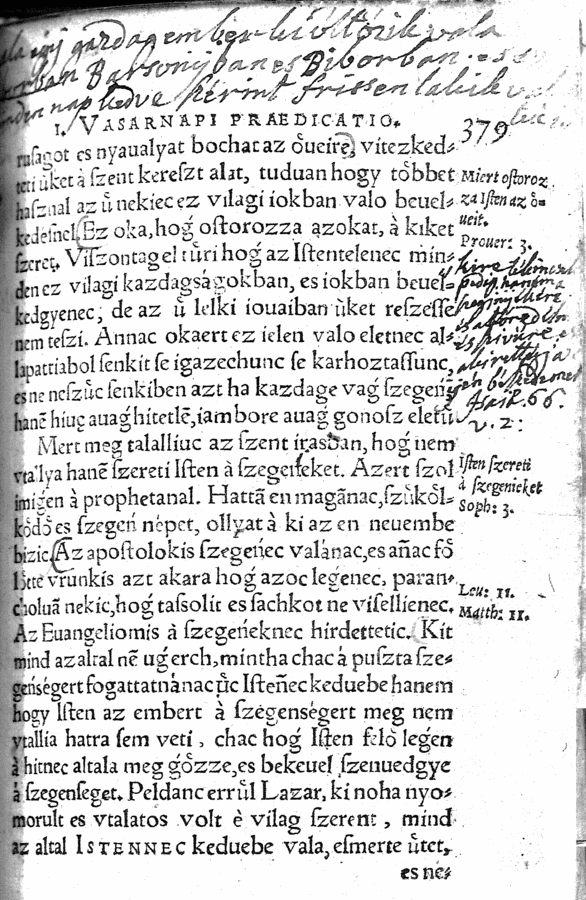 gazdag ember
Barsonyban es Biborban
nap kedve szerint frissen lakik
I. VASARNAPI PRAEDICATIO.
379
rusagot es nyaualyat bochat az óueire, vitezked-
teti ùket à szent kereszt alat, tuduan hogy tôbbet
hasznal az ù nekiec ez vilagi iokban valo beuel-
kedesnel. Ez oka, hog ostorozza azokat, à kiket
szeret. Viszontag el tùri hog az Istentelenec min-
den ez vilagi kazdagságokban, es iokban beuel-
kedgyenec, de az ù lelki iouaiban ùket reszesse
nem teszi. Annac okaert ez ielen valo eletnec al-
lapattiabol senkit se igazechunc se karhoztassunc,
es ne neszùc senkiben azt ha kazdage vag szegeń,
hanē hiuę auag hitetlē, iam bore auag gonosz eletù
Mert meg talalliuc az szent irasban, hog nem
vtalya hanē szereti Isten à szegeńeket. Azert szol
imigen à prophetanal. Hattā en magānac, szùkôl-
kôdô es szegeń népet, ollyat à ki az en neuembe
bizic. Az apostolokis szegeńec valánac, es ańac fô
lôtte vrunkis azt akara hog azoc legenec, paran-
choluā nekic, hog tassolit es sachkot ne visellienec.
Az Euangeliomis à szegeńeknec hirdettetic. Kit
mind az altal nē ug erch, mintha chac á puszta sze-
geńségert fogattatnánac ùc Isteńec keduebe hanem
hogy Isten az embert à szegenségert meg nem
vtallia hatra sem veti, chac hog Isten felô legen
à hitnec altala meg gôzze, es bekeuel szenuedgye
à szegenseget. Peldanc errùl Lazar, ki noha nyo-
morult es vtalatos volt è vilag szerent, mind
az altal ISTENNEC keduebe vala, esmerte ùtet,
es ne-
Miert ostoroz
za Isten az ô-
ueit.
Prouer: 3.
Esaiæ. 66.
v. 2:
Isten szereti
à szegenieket
Soph: 3.
Leu: 11.
Matth: 11.